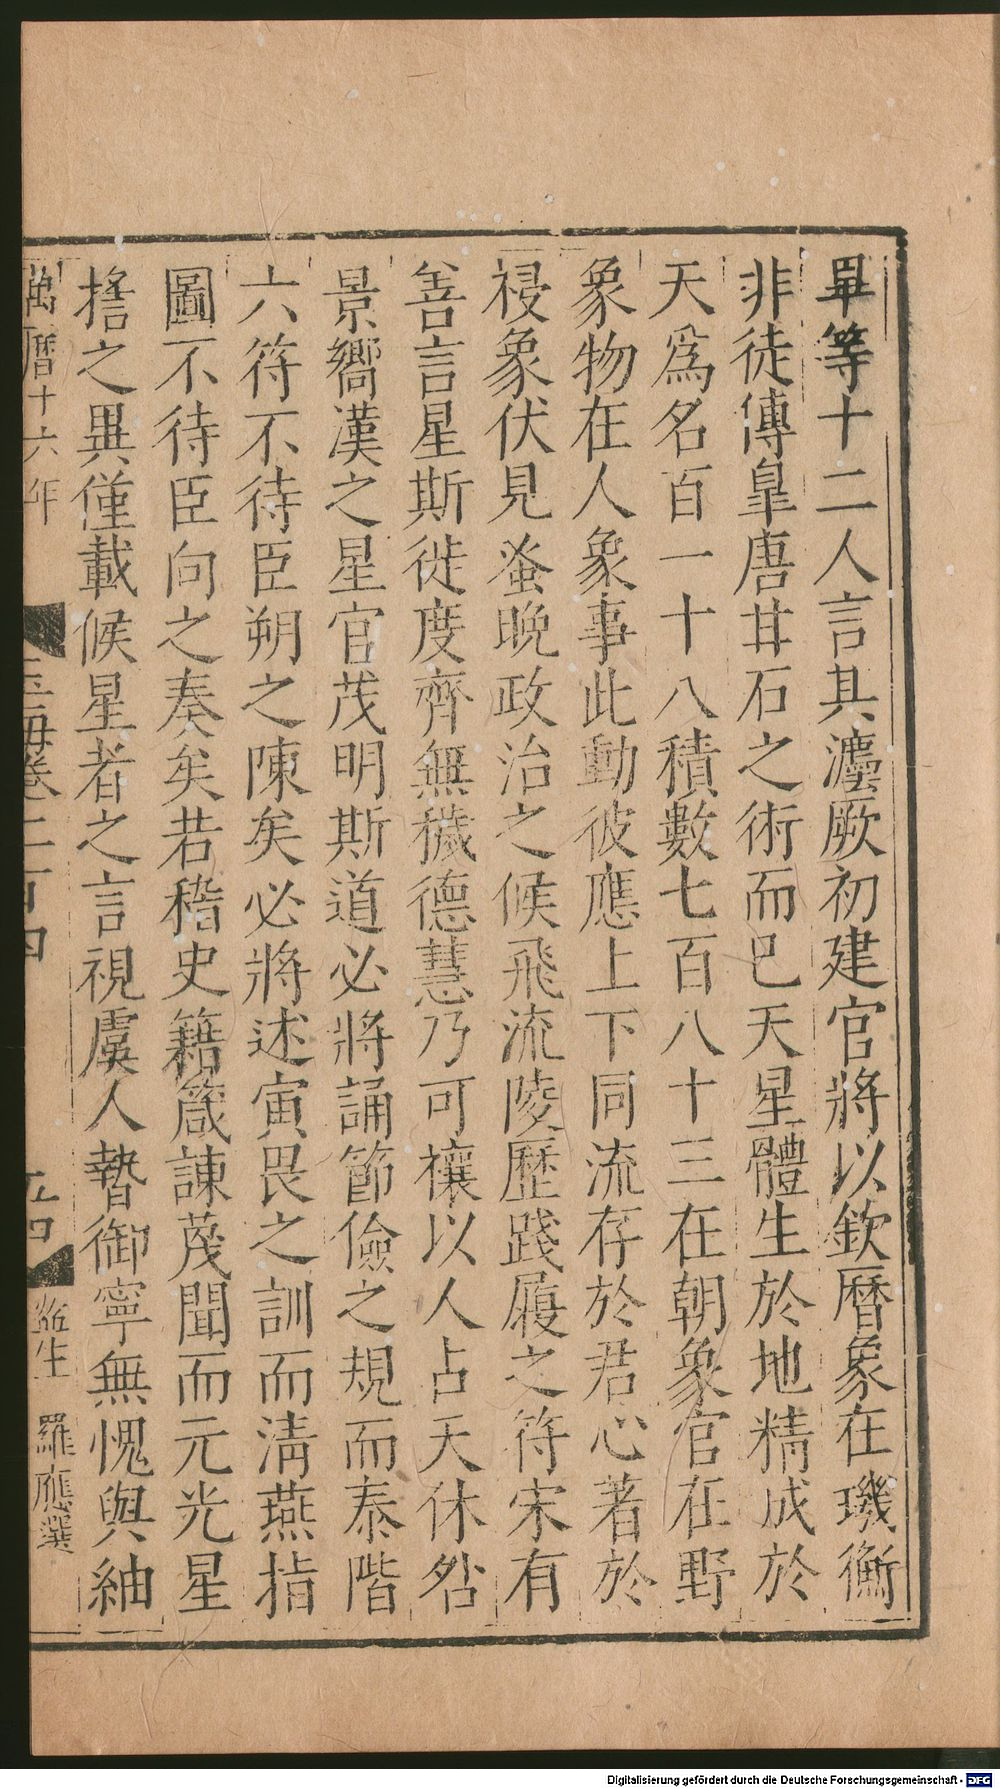 畢等十二人言其灋厥初建官將以欽曆象在璣衡
非徒傳皐唐甘石之術而巳天星體生於地精成於
天爲名百一十八積數七百八十三在朝象官在野
象物在人象事此動彼應上下同流存於君心著於
祲象伏見蚤晚政治之候飛流陵歷踐履之符宋有
善言星斯徙度齊無穢德慧乃可禳以人占天休咎
景嚮漢之星官茂明斯道必將誦節儉之規而泰階
六符不待臣朔之陳矣必將述寅畏之訓而淸燕指
圖不待臣向之奏矣若稽史籍箴諫蔑聞而元光星
搖之異僅載候星者之言視虞人暬御寧無愧與紬
萬曆十六年
玉海卷二百四
監生 羅應選
Digitalisierung gefördert durch die Deutsche Forschungsgemeinschaft - DFG